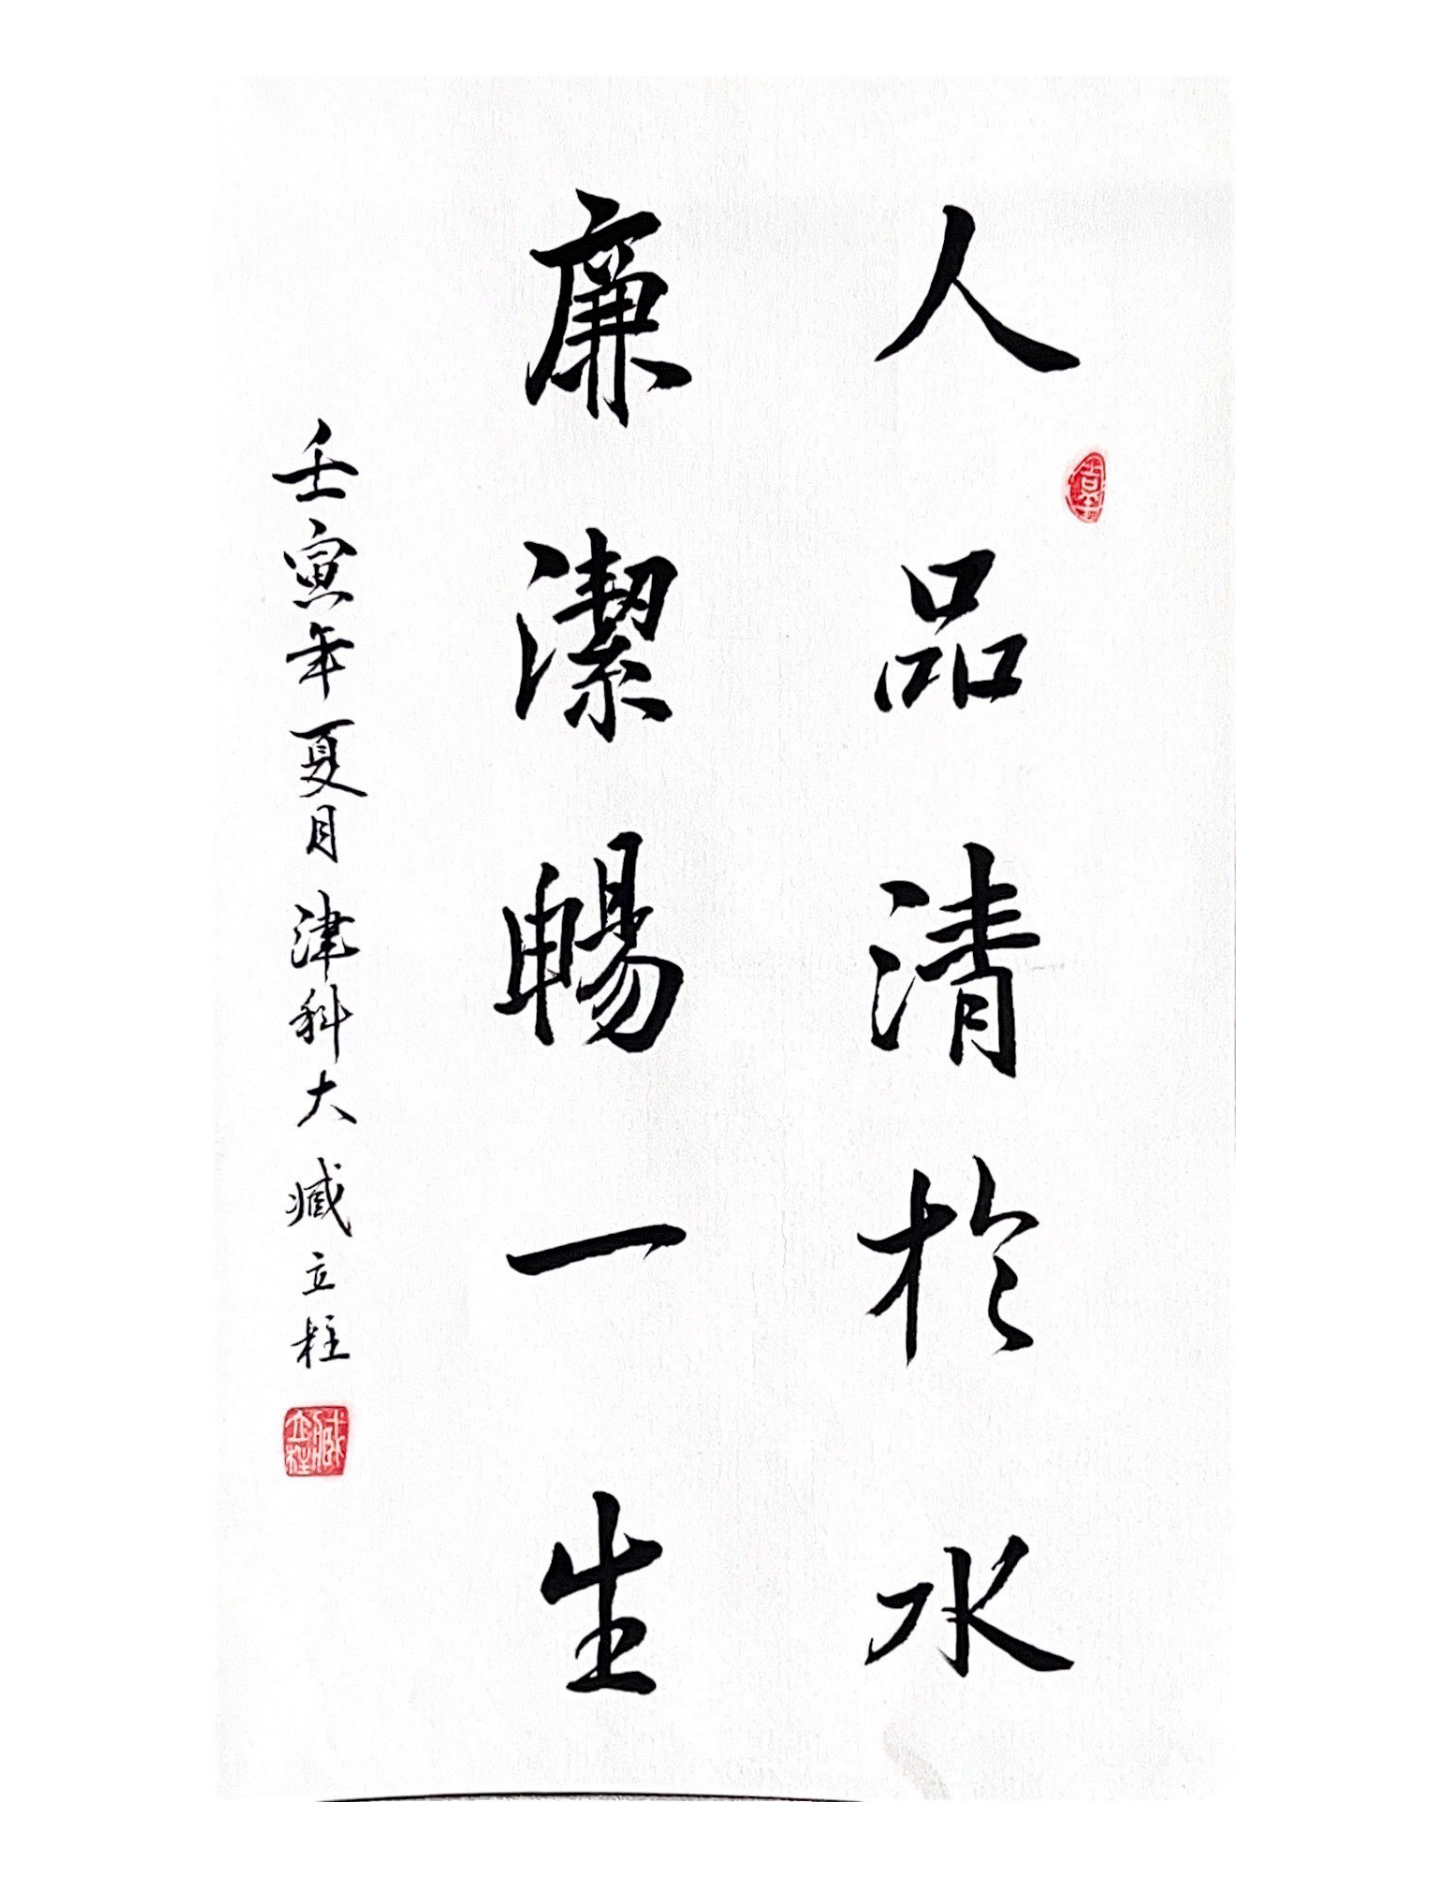 人品清於水
廉潔暢一生
壬寅年夏月津科大臧立柱
臧立柱